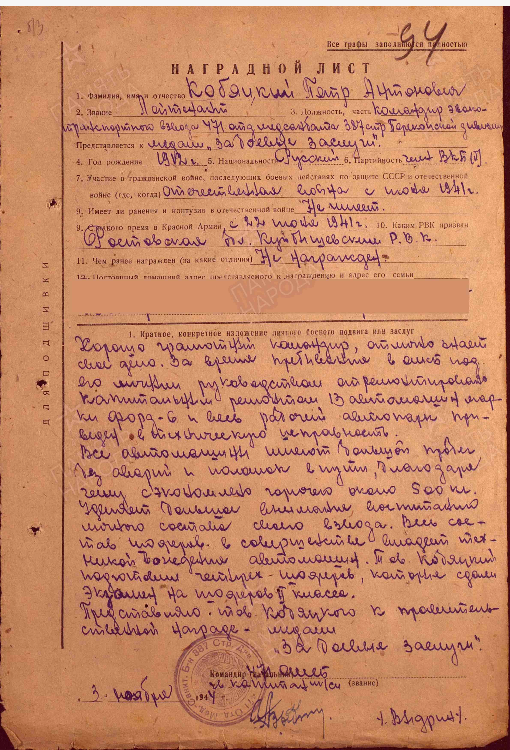 94
Все графы заполняются полностью
НАГРАДНОЙ ЛИСТ
1. Фамилия, имя и отчество Кобяцкий Петр Антонович
2. Звание Лейтенант 3. Должность, часть командир
транспортного взвода 471 387 стр. дивизии
Представляется к медали „За боевые заслуги".
4. Год рождения 5. Национальность Русский 6. Партийность член ВКП(б)
7. Участие в гражданской войне, последующих боевых действиях по защите СССР и отечественной
войне (где, когда) Отечественная война с июня 1941 г.
8. Имеет ли ранения и контузии в отечественной войне Не имеет.
9. С какого время в Красной Армии с 22 июня 1941 г. 10. Каким РВК призван
Ростовская обл. Куйбышевским Р.В.К.
11. Чем ранее награжден (за какие отличия) Не награжден
12. Постоянный домашний адрес представляемого к награждению и адрес его семьи
ДЛЯ ПОДШИВКИ
1. Краткое, конкретное изложение личного боевого подвига или заслуг
Хорошо грамотный командир, отлично знает
свое дело. За время пребывания в под
его личным руководством отремонтировано
капитальным ремонтом 13 автомашин мар-
ки форд-6 и весь рабочий автопарк при-
веден в техническую исправность.
Все автомашины имеют большой пробег
без аварий и поломок в пути, благодаря
чему сэкономлено горючего около 500 кг.
Уделяет большое внимание воспитанию
личного состава своего взвода. Весь сос-
тав шоферов в совершенстве владеет тех-
никой вождения автомашин. Тов. Кобяцкий
подготовил четырех шоферов, которые сдали
экзамен на шоферов класса.
Представляю тов. Кобяцкого к правитель-
ственной награде - медали
„За боевые заслуги".
Командир 471
капитан м/с (звание)
3 ноября 194
/Выдрин/.